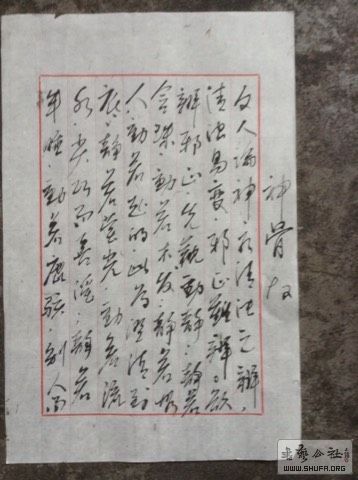 神骨
文人論神有清濁之辨，
清濁易變，邪正難辨，欲
辨邪正，先觀動靜，靜若
含珠，動若木發，靜若無
人，動若赴的，此為澄清到
底，靜若螢光，動若流
水，尖巧而喜淫，靜若
半睡，動若鹿駭，別才而
书法公社
WWW.SHUFA.ORG